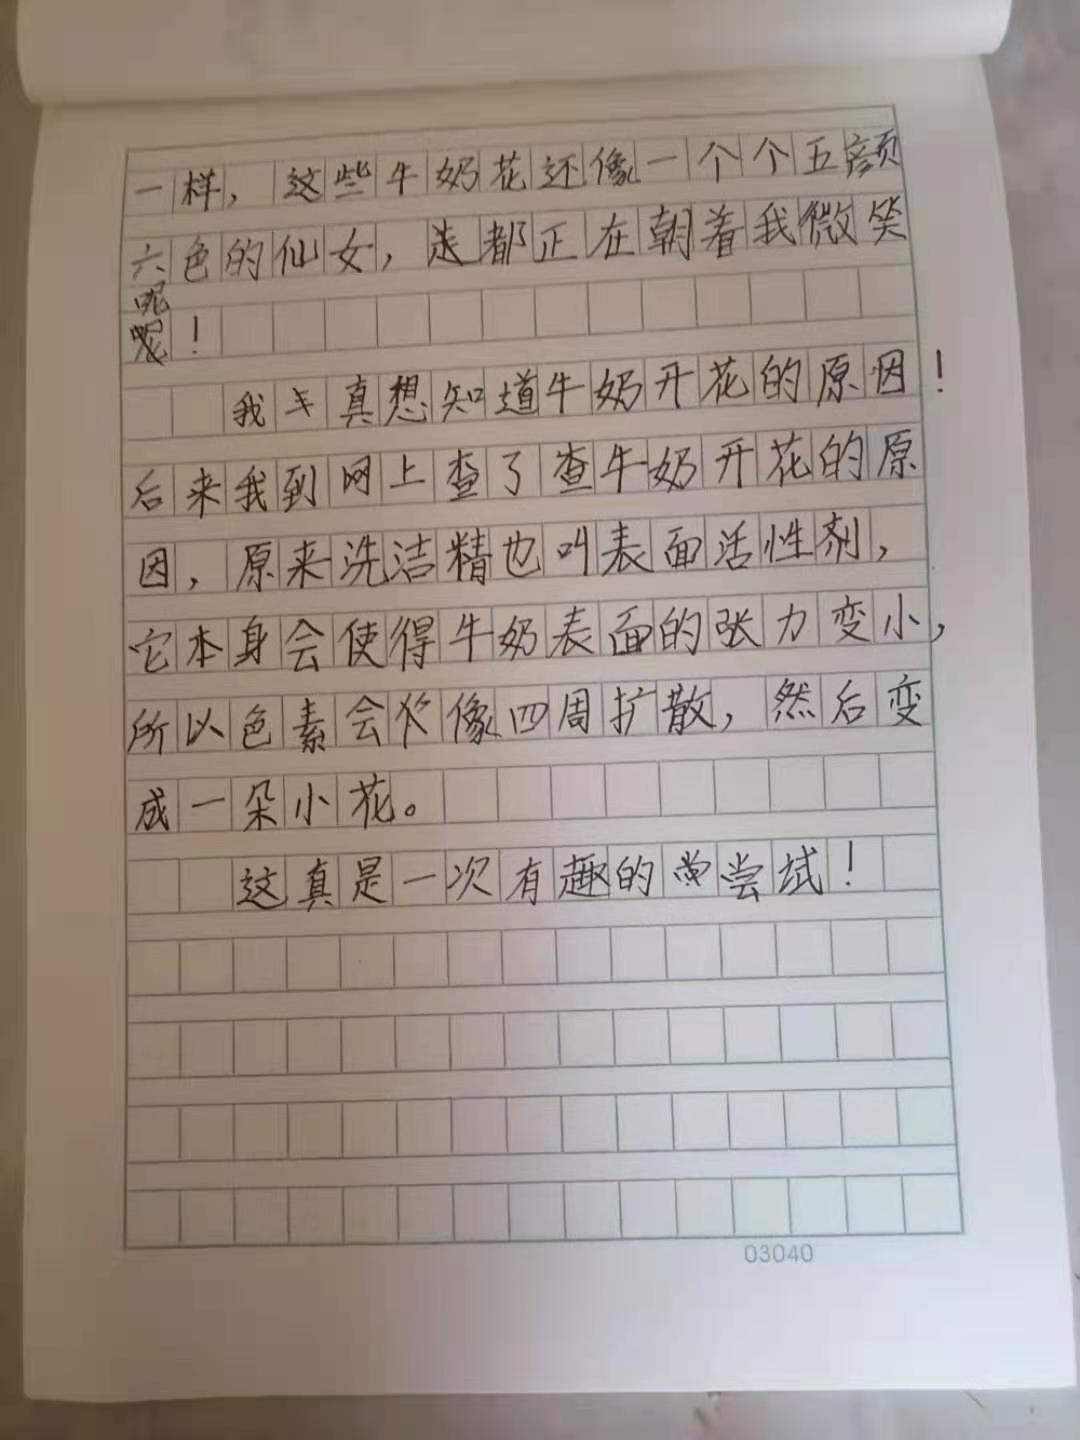 一样，这些牛奶花还像一个个五颜
六色的仙女，都正在朝着我微笑
呢！
我真想知道牛奶开花的原因！
后来我到网上查了查牛奶开花的原
因，原来洗洁精也叫表面活性剂，
它本身会使得牛奶表面的张力变小，
所以色素会像四周扩散，然后变
成一朵小花。
这真是一次有趣的尝试！
03040